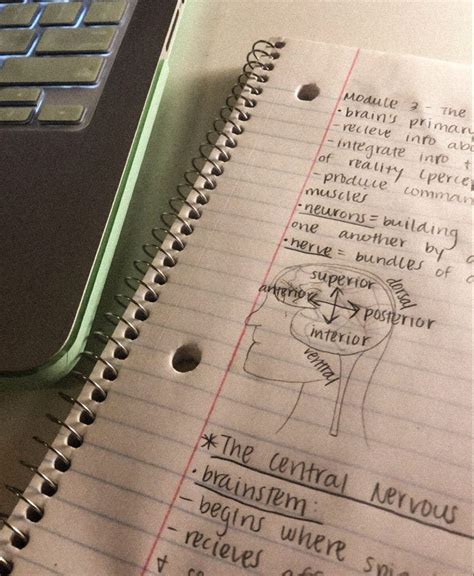 Module 2 - The
• brain's primary
- recieve info abo
- integrate info
of reality (perce
- produce comman
muscles
• neurons = building
one another by
• nerve = bundles of
superior
dorsal
anterior
posterior
interior
ventral
*The central nervous
• brainstem:
- begins where spi
- recieves aff